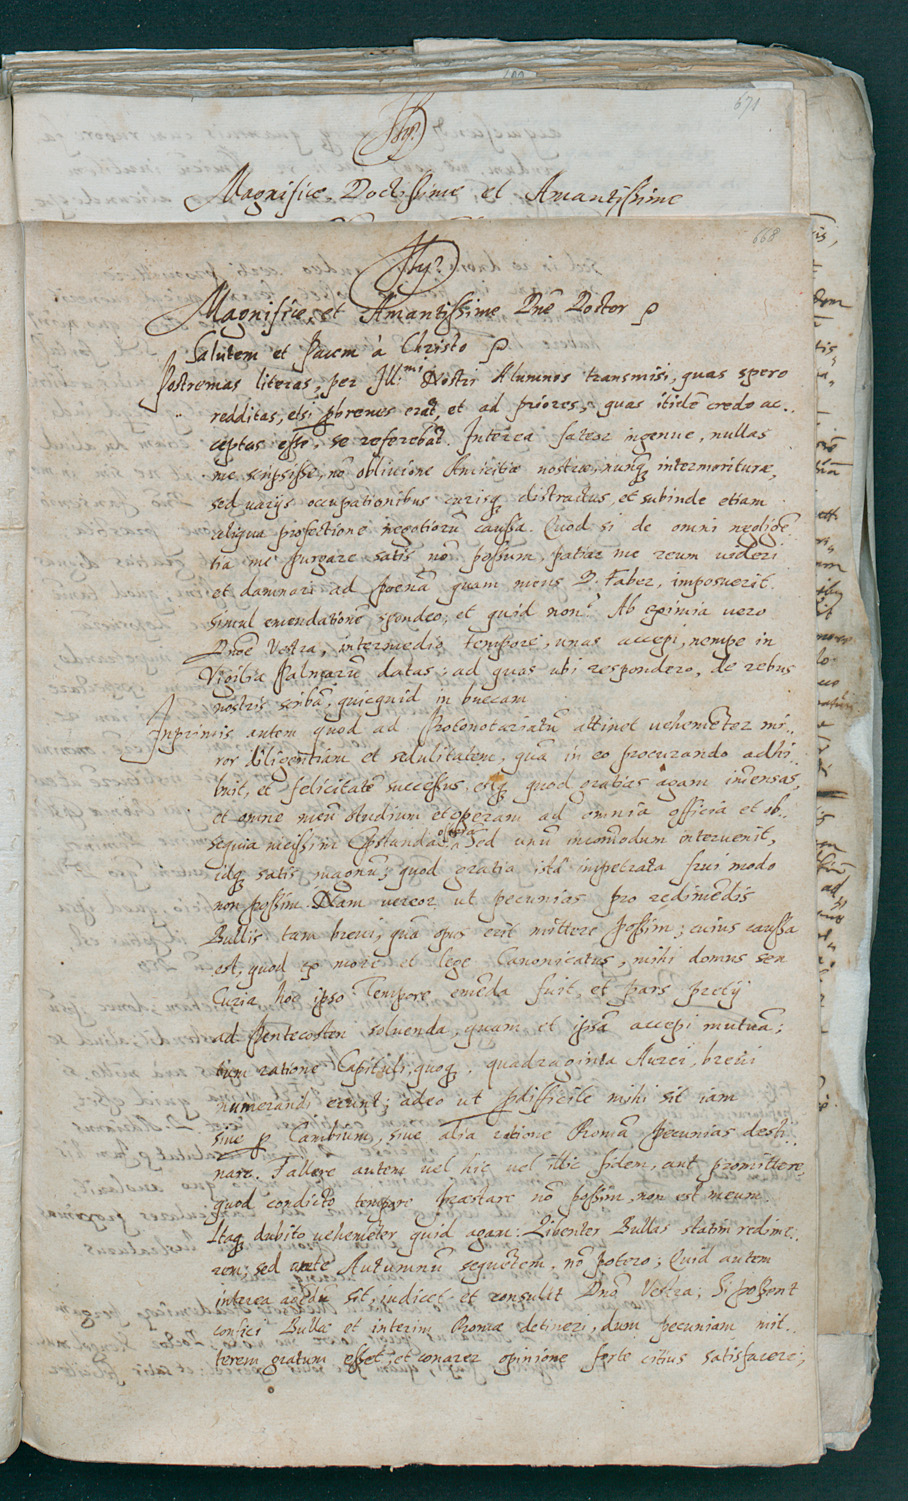 671
Magnifice, Doctissime et Amantissime
668
Magnifice, et Amantissime Dne Doctor
Salutem et Pacem à Christo
Postremas literas, per Ill.mi Nostri Alumnos transmisi, quas spero
redditas, etsi pbreues erāt, et ad priores, quas itidē credo ac„
ceptas esse, se referebāt. Interea fateor ingenue, nullas
me scripsisse, nō obliuione Amicitiæ nostræ, nunq̄ intermorituræ,
sed varijs occupationibus curisq; distractus, et subinde etiam
aliqua profectione negotiorū caussa. Quod si de omni negligē
tia me purgare satis nō possum, patiar me reum uideri
et damnari ad poenā quam meus D. Faber, imposuerit.
simul emendationē spondeo, et quid non? Ab eximia vero
Dnōe Vestra, intermedio tempore, unas accepi, nempe in
Vigilia Palmarū datas; ad quas ubi respondero, de rebus
nostris scribā, quicquid in buccam
Inprimis autem quod ad Protonotariatū attinet uehemēter mi„
ror diligentiam et sedulitatem, quā in eo procurando adhi„
buit, et felicitatē successus, estq; quod gratias agam imēensas,
et omne meū studium et operam ad omnia officia et ob„
sequia uicissim
offerā Sed unū incōmodum interuenit,
idq; satis magnū; quod gratia istā impetrata frui modo
non possim. Nam uereor ut pecunias pro redimēdis
Bullis tam breui, quā opus erit mittere possim; cuius caussa
est, quod ex more et lege Canonicatus, mihi domus seu
Curia hoc ipso tempore emēda fuit, et pars pretij
ad Pentecosten soluenda, quam et ipsā accepi mutuā;
tum ratione Capituli, quoq;, quadraginta Aurei, breui
numerandi erunt; adeo ut pdifficile mihi sit iam
siue p Cambium, siue alia ratione Romā pecunias desti„
nare. Fallere autem uel hic uel illic fidem, aut promittere
quod condicto tempore præstare nō possim, non est meum.
Itaq; dubito uehemēter quid agam: Libenter Bullas statim redime„
rem; sed ante Autumnū sequētem, nō potero; Quid autem
interea agēdū sit, iudicet et consulat Dnāo Vestra; Si possent
confici Bullæ et interim Romæ detineri, dum pecuniam mit„
terem gratum esset, et conarer opinione forte citius satisfacere;